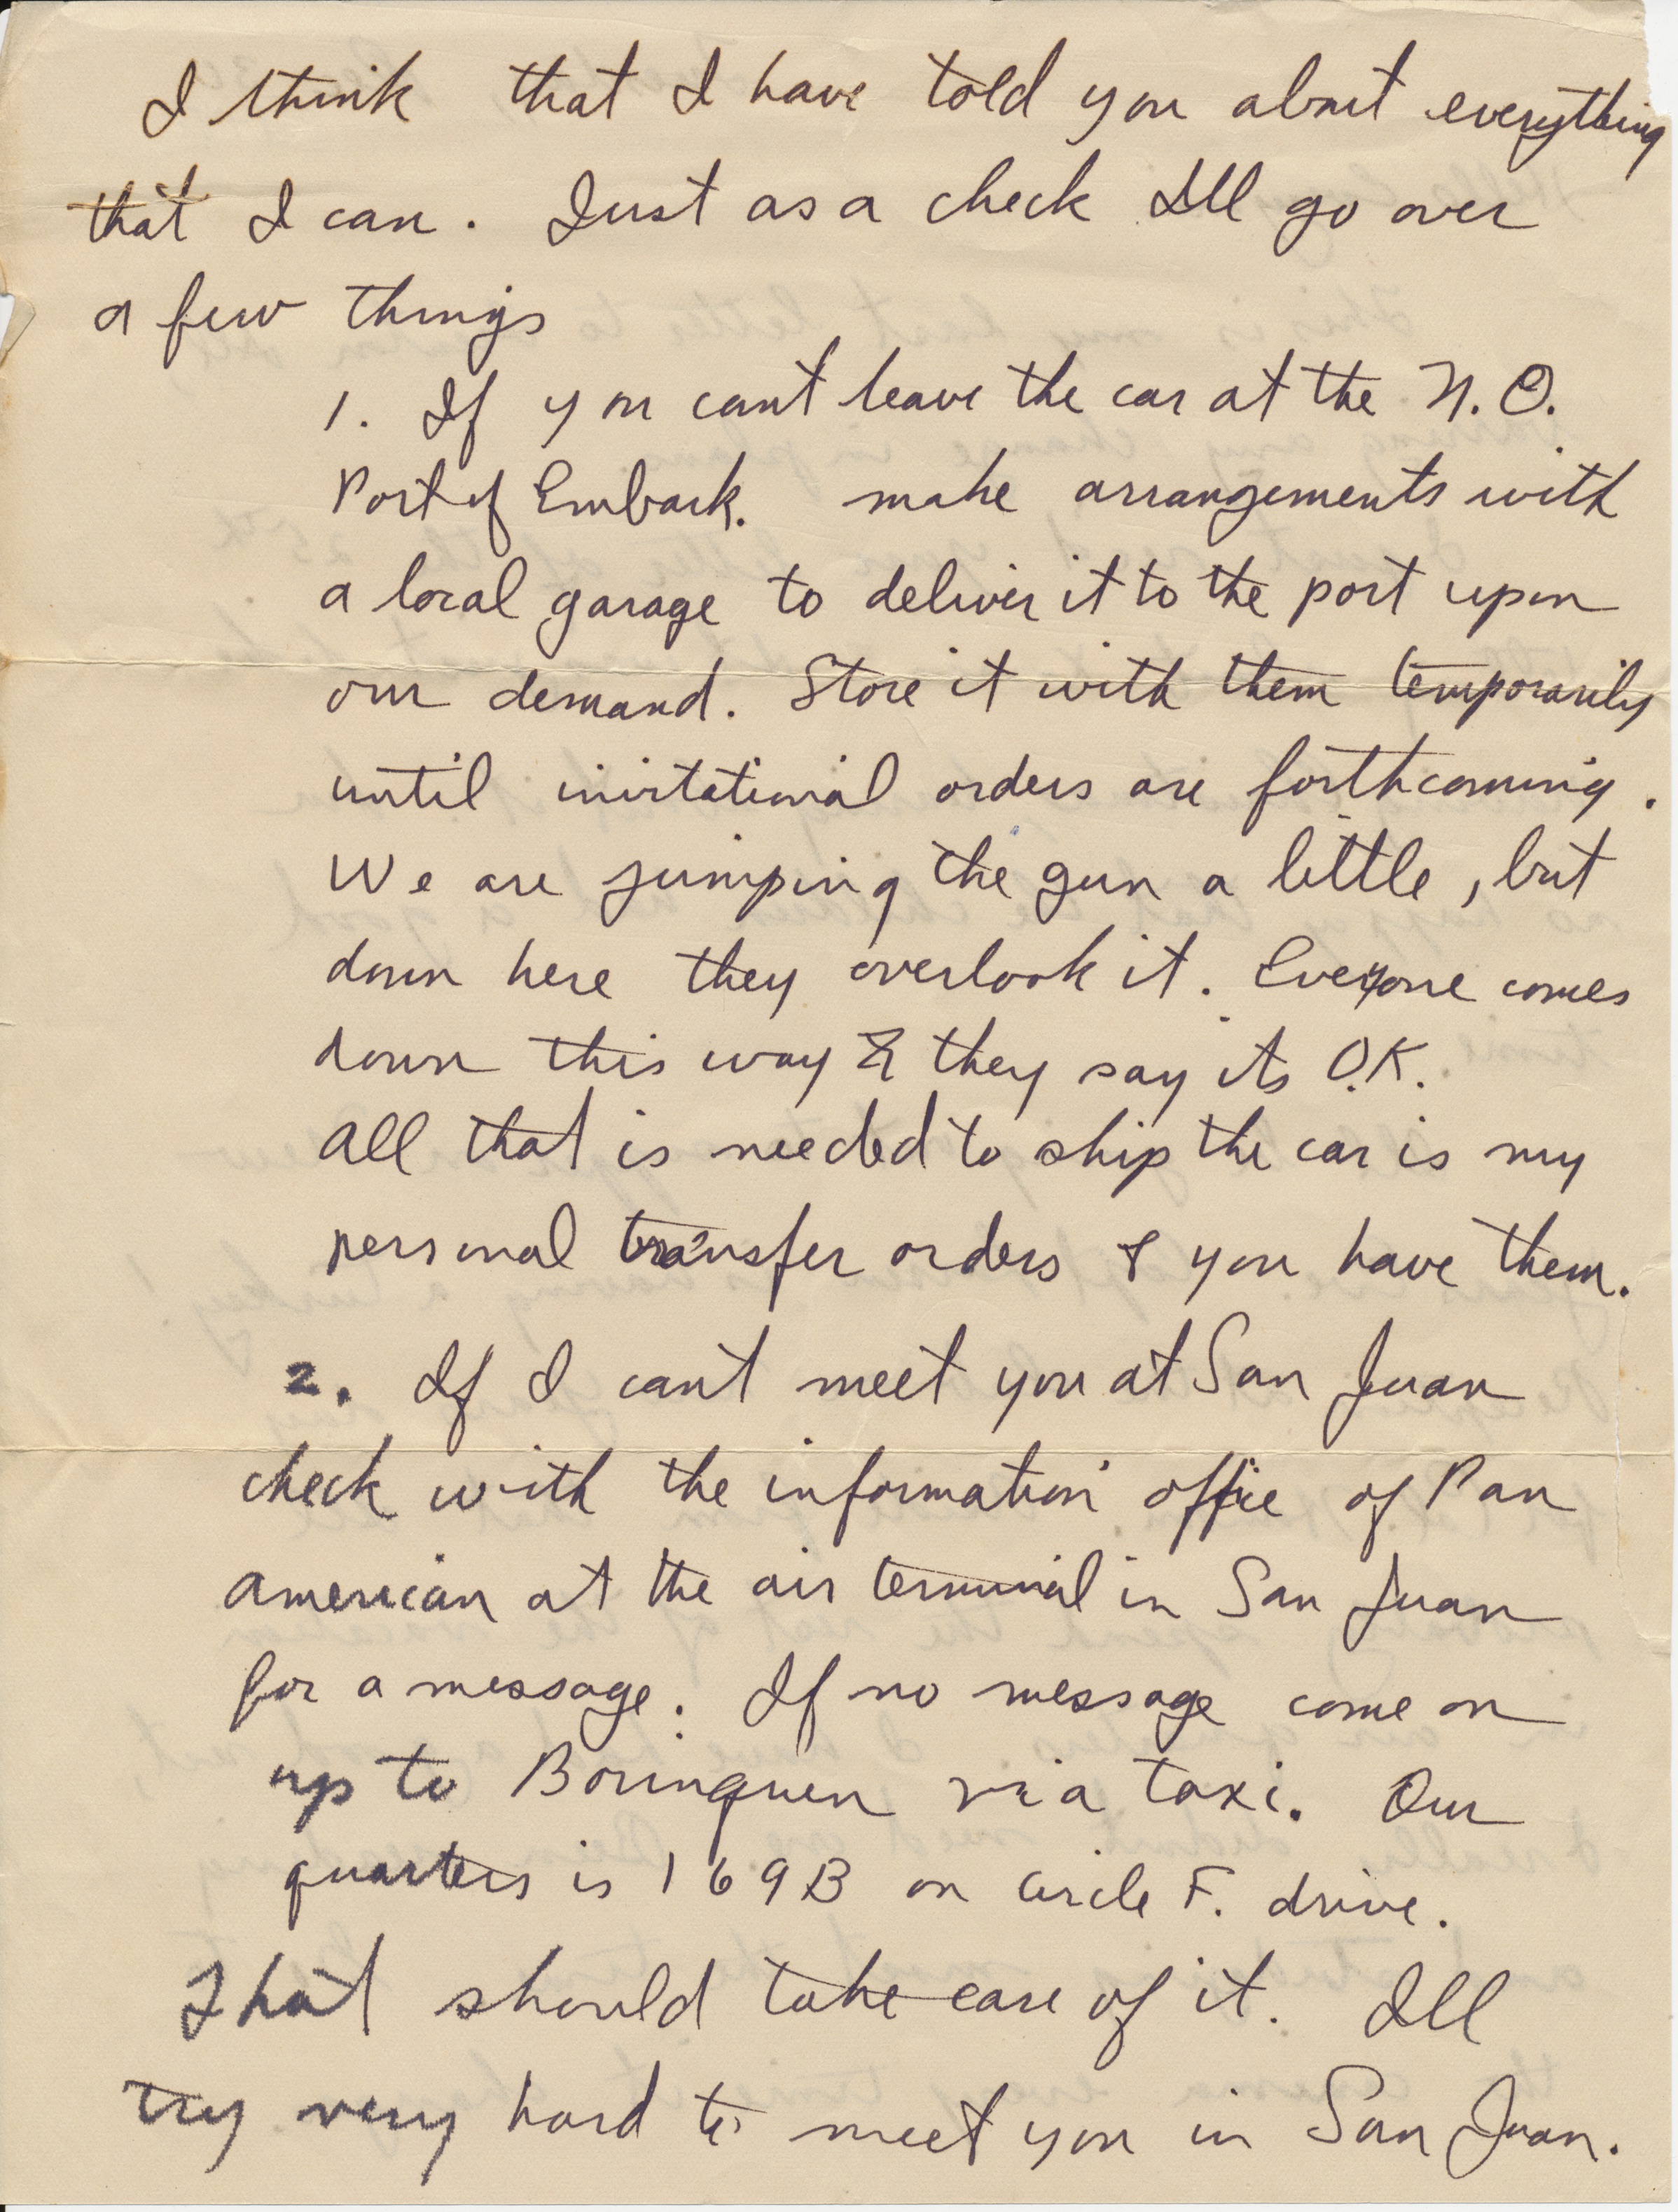 I think that I have told you about everything
that I can. Just as a check Ill go over
a few things
1. If you cant leave the car at the N.O.
Port of Embark. make arrangements with
a local garage to deliver it to the port upon
our demand. Store it with them temporarily
until invitational orders are forthcoming.
We are jumping the gun a little, but
down here they overlook it. Everyone comes
down this way & they say its O.K.
All that is needed to ship the car is my
personal transfer orders & you have them.
2. If I cant meet you at San Juan
check with the information office of Pan
American at the air terminal in San Juan
for a message. If no message come on
up to Borinquen via taxi. Our
quarters is 169B on Circle F. drive.
That should take care of it. Ill
try very hard to meet you in San Juan.